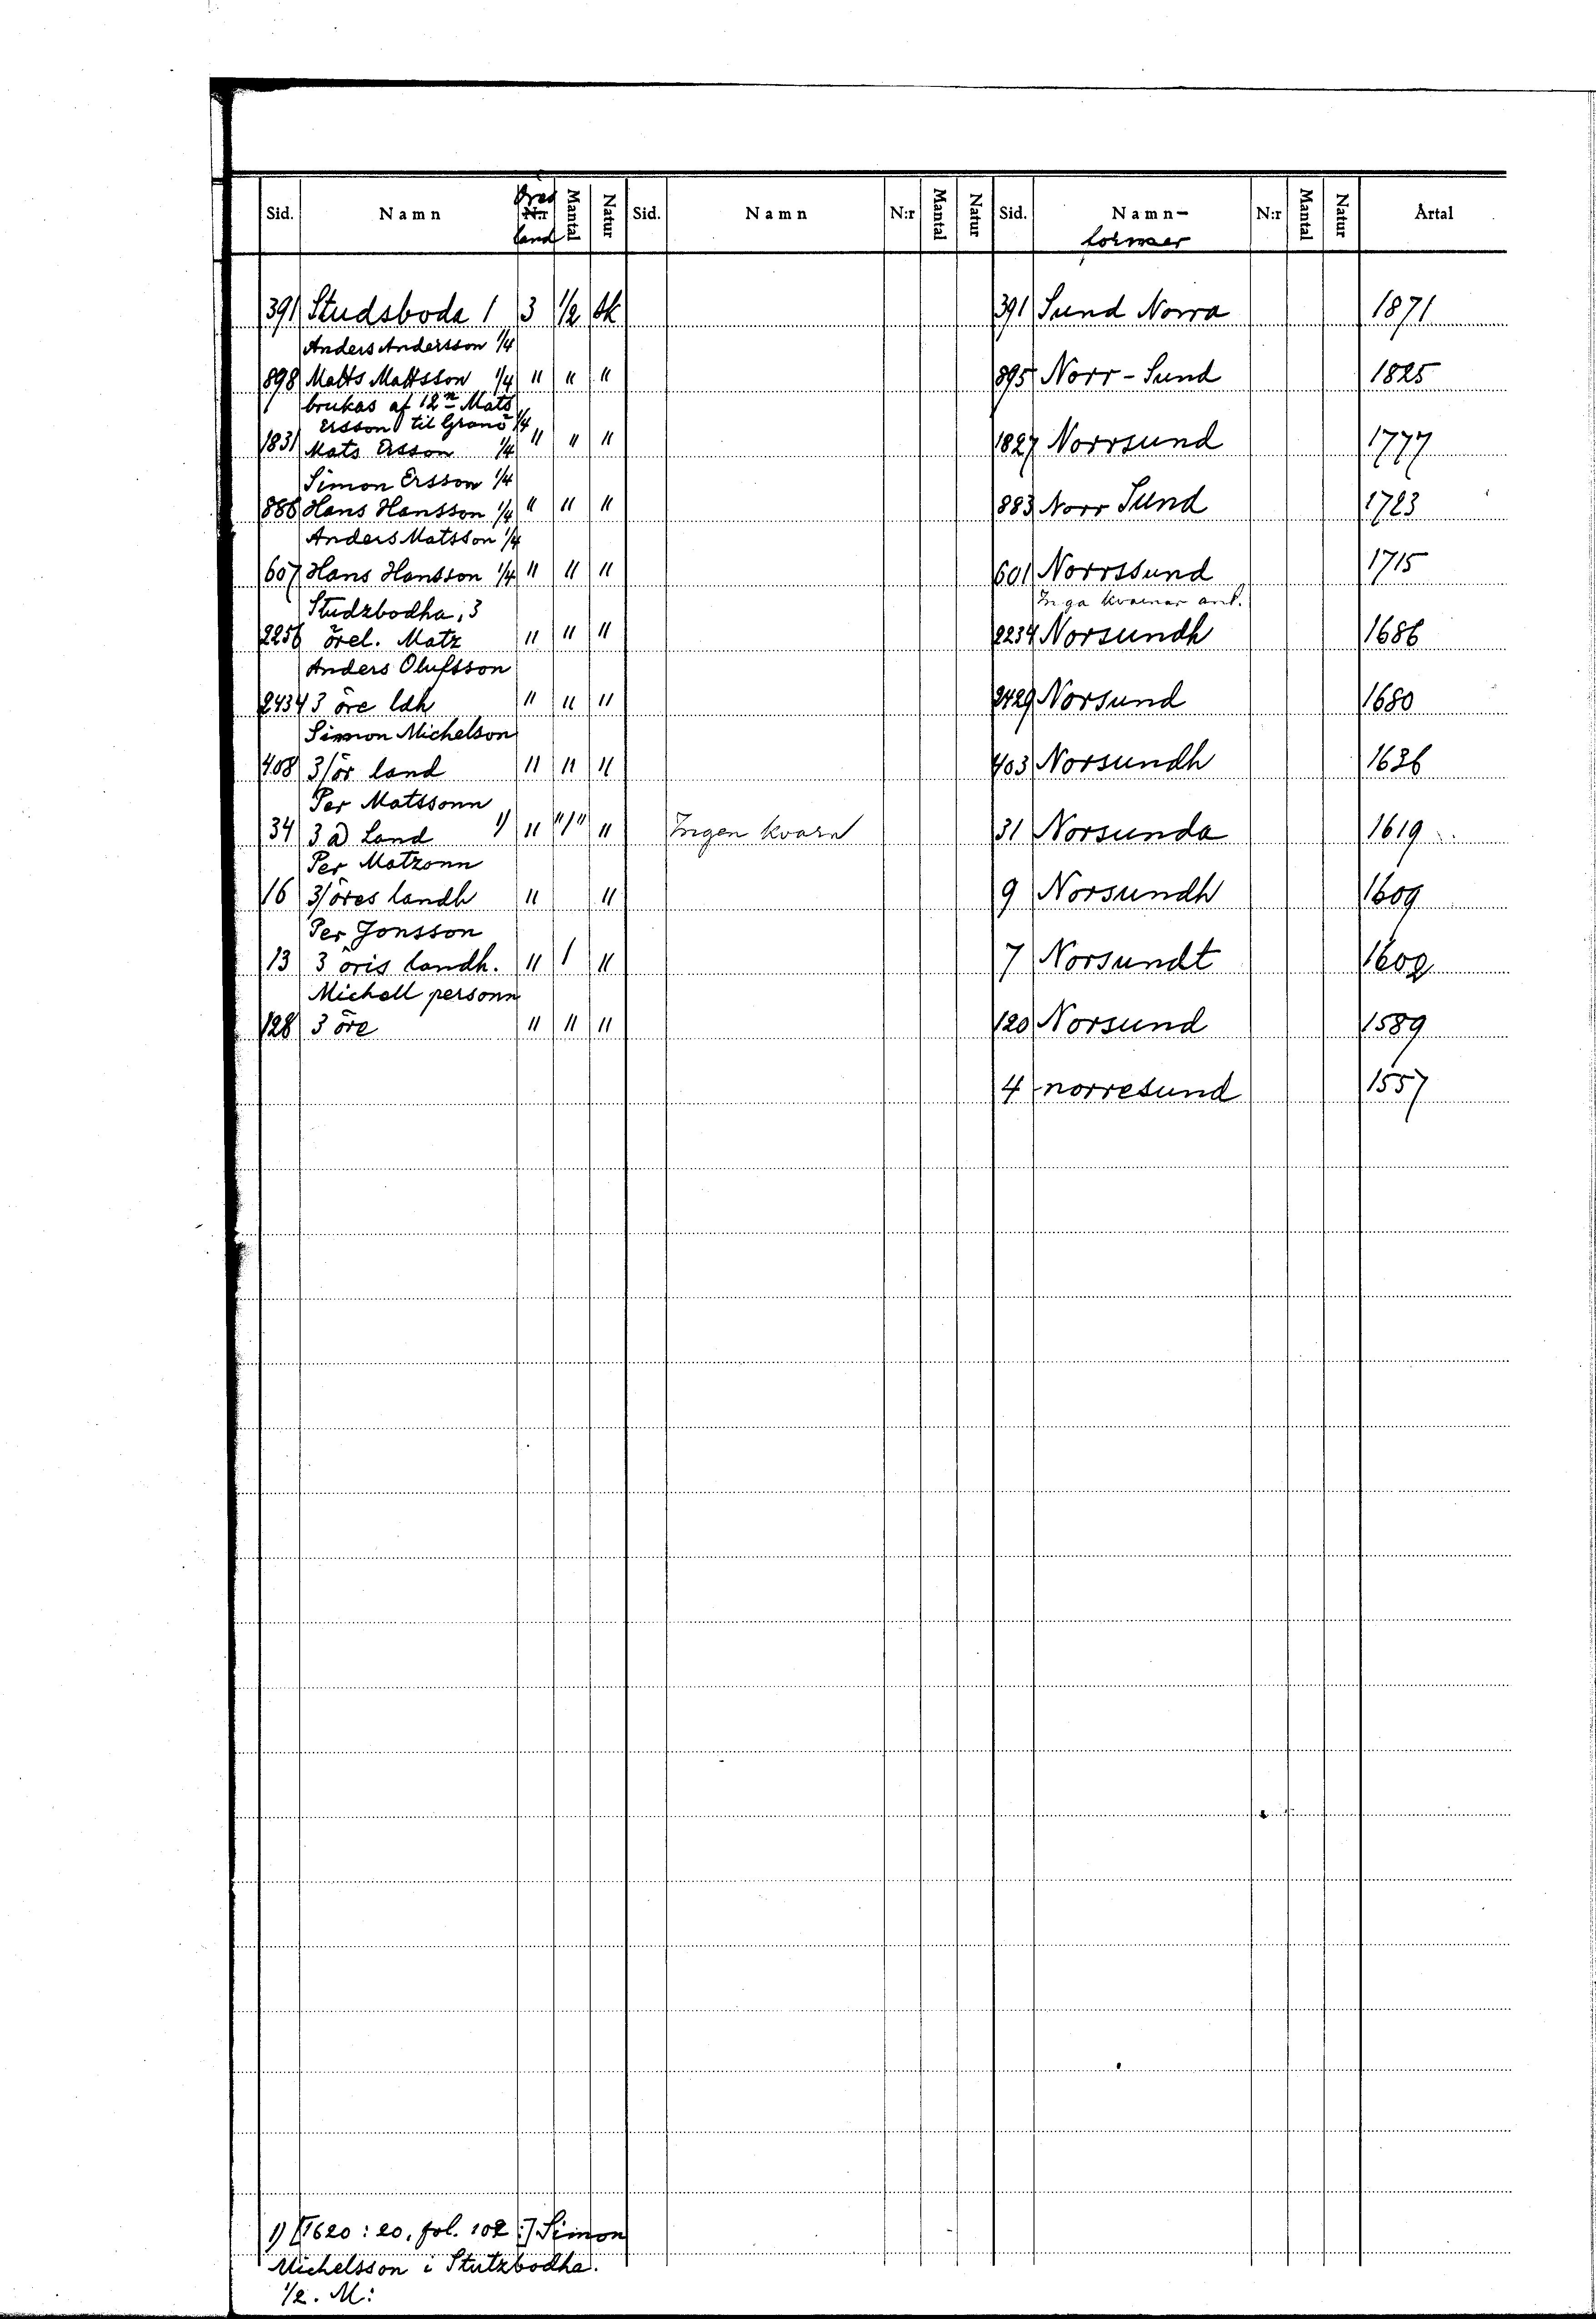 Sid. Namn Öres N:r land Mantal Natur Sid. Namn N:r Mantal Natur Sid. Namn- former N:r Mantal Natur Årtal
391 Studsboda 1 3 1/2 Sk 391 Sund Norra 1871
Anders Andersson 1/4
898 Matts Mattsson 1/4 " " " 895 Norr-Sund 1825
brukas af 12n Mats
Ersson til Granö 1/4
1831 Mats Ersson 1/4 " " " 1827 Norrsund 1777
Simon Ersson 1/4
886 Hans Hansson 1/4 " " " 883 Norr Sund 1723
Anders Matsson 1/4
607 Hans Hansson 1/4 " " " 601 Norrssund 1715
Studzbodha, 3 Inga kvarnar ant.
2256 örel. Matz " " " 2234 Norsundh 1686
Anders Olufsson
2434 3 öre ldh " " " 2429 Norsund 1680
Simon Michelson
408 3/ör land " " " 403 Norsundh 1636
Per Matssonn
34 3 Land 1) " "/" " Ingen kvarn 31 Norsunda 1619
Per Matzonn
16 3/öres landh " " 9 Norsundh 1609
Per Jonsson
13 3 öris landh. " 1 " 7 Norsundt 1602
Michell personn
128 3 öre " " " 120 Norsund 1589
4 norresund 1557
1) [1620: 20, fol. 102:] Simon
Michelsson i Stutzbodha.
1/2. M: